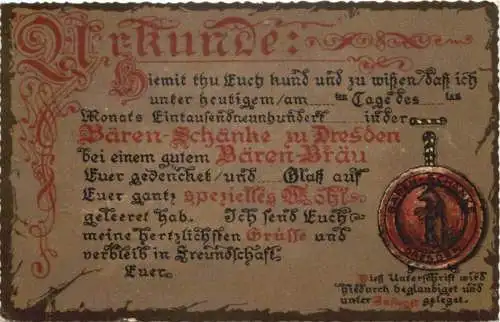 Urkunde:
Hiemit thu Euch kund und zu wißen/daß ich
unter heutigem/am ten Tage des tas
Monats Eintausendneunhundert in der
Bären-Schänke zu Dresden
bei einem gutem Bären-Bräu
Euer gedencket/und Glaß auf
Euer gantz spezielles Wohl
geleeret hab. Ich send Euch
meine hertzlichsten Grüsse und
verbleib in Freundschaft
Euer
BÄREN-SCHÄNKE
DRESDEN
Dies Unterschrift wird
hiedurch beglaubiget und
unter geleget.